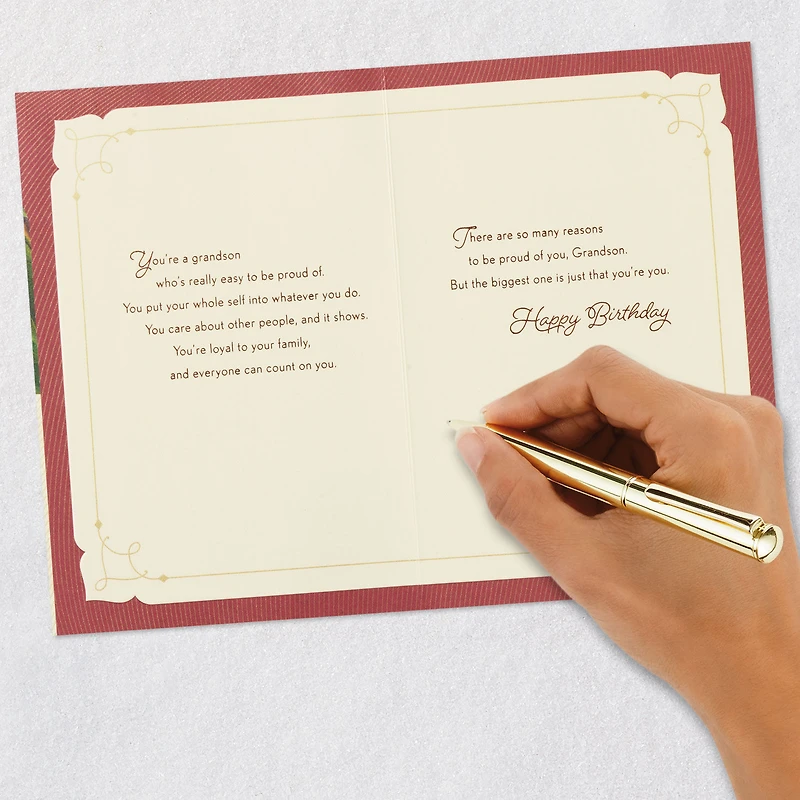 You're a grandson
who's really easy to be proud of.
You put your whole self into whatever you do.
You care about other people, and it shows.
You're loyal to your family,
and everyone can count on you.
There are so many reasons
to be proud of you, Grandson.
But the biggest one is just that you're you.
Happy Birthday